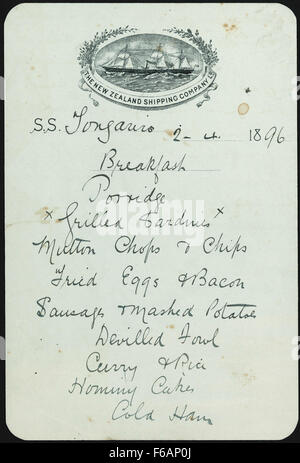 THE NEW ZEALAND SHIPPING COMPANY Ld
S.S. Tongariro 2-4 1896
Breakfast
Porridge
x Grilled Sardines x
Mutton Chops & Chips
Fried Eggs & Bacon
Sausages & Mashed Potatoes
Devilled Fowl
Curry & Rice
Hominy Cakes
Cold Ham
alamy stock photo
F6A0PJ